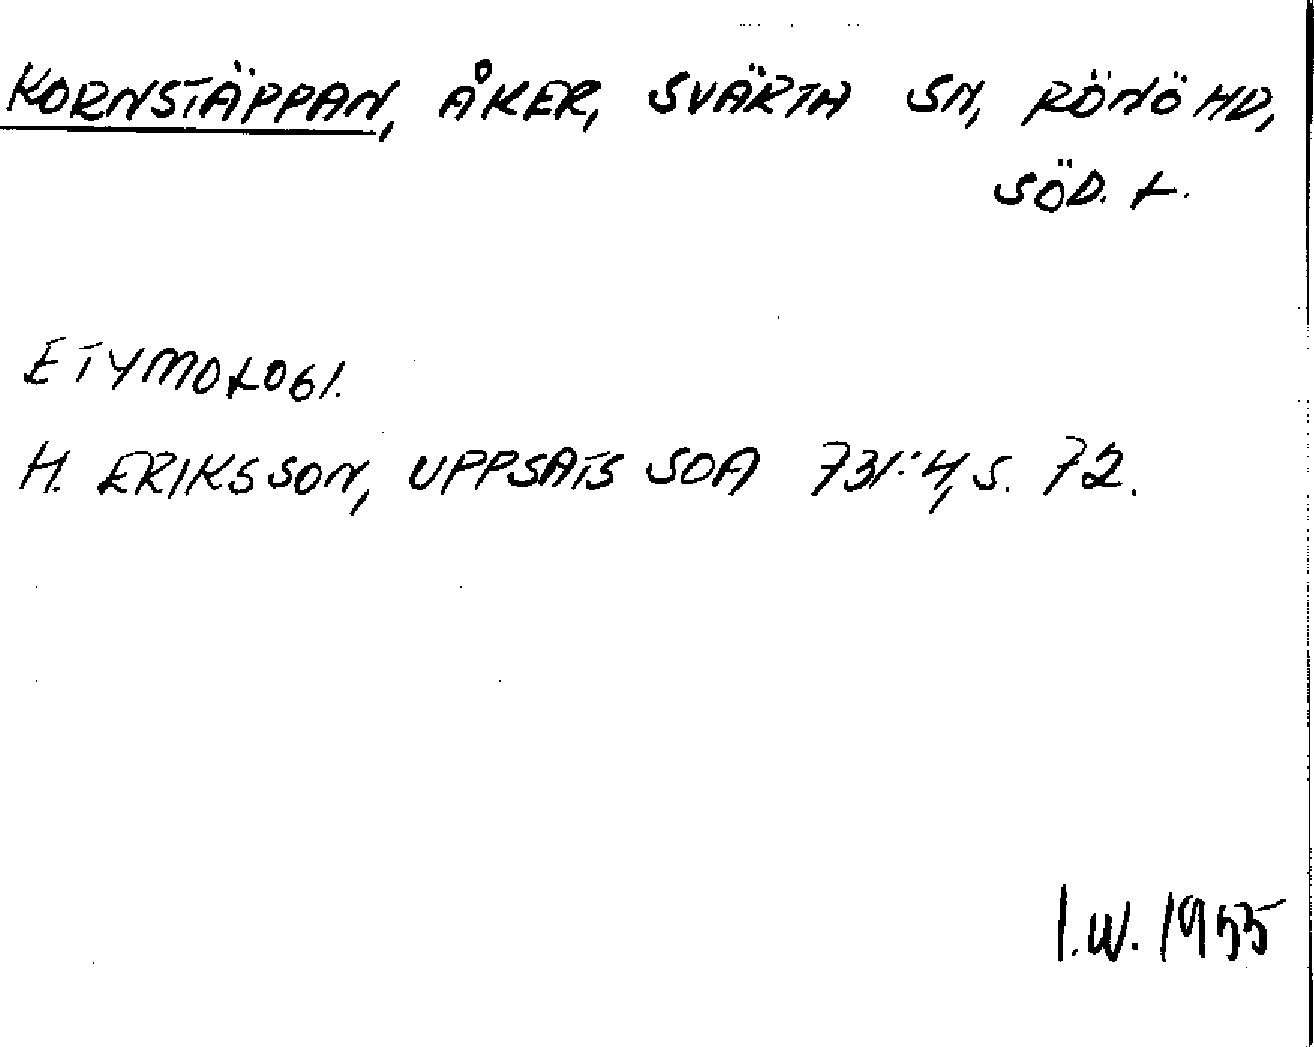 KORNSTÄPPAN, ÅKER, SVÄRTA SN, RÖNÖ HD,
SÖD. L.
ETYMOLOGI.
H. ERIKSSON, UPPSATS SOA 731:4, S. 72.
I.W. 1955